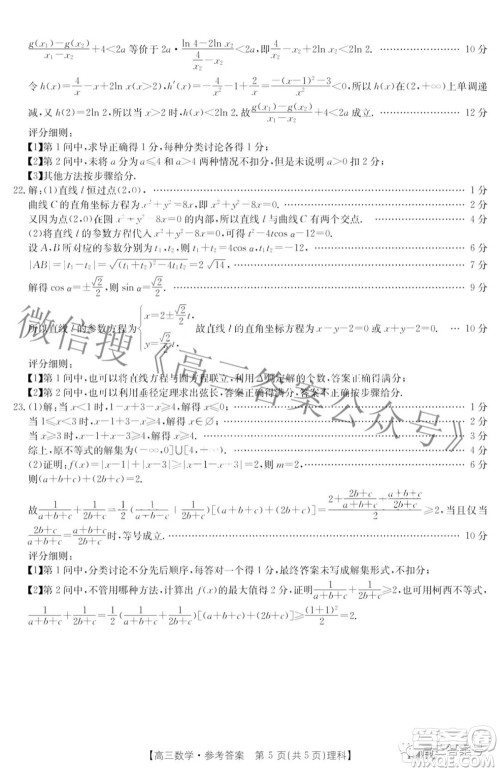 g(x₁)−g(x₂)/x₁−x₂+4<2a 等价于 2a·(ln 4−2ln x₂)/(4/x₂−x₂)<2a,即4/x₂−x₂+2ln x₂<2ln 2. …… 10 分
令 h(x)=4/x−x+2ln x(x>2),h′(x)=−4/x²−1+2/x=−(x−1)²−3/x²<0,所以 h(x)在(2,+∞)上单调递
减,又 h(2)=2ln 2,所以当 x>2 时,h(x)<2ln 2,故 g(x₁)−g(x₂)/x₁−x₂+4<2a 成立. …… 12 分
评分细则:
【1】第 1 问中,求导正确得 1 分,每种分类讨论各得 1 分;
【2】第 2 问中,未将 a 分为 a≤4 和 a>4 两种情况考虑的不得分;
【3】其他方法按步骤给分.
22.解:(1)直线 l 恒过点(2,0), …… 1 分
曲线 C 的直角坐标方程为 x²+y²−8x=0, …… 3 分
又因为点(2,0)在圆 x²+y²−8x=0 的内部,所以直线 l 与曲线 C 有两个交点. …… 4 分
(2)将直线 l 的参数方程代入 x²+y²−8x=0,可得 t²−4tcos α−12=0. …… 5 分
设 A,B 所对应的参数分别为 t₁,t₂,则 t₁+t₂=4cos α,t₁t₂=−12, …… 6 分
|AB|=|t₁−t₂|=√((t₁+t₂)²−4t₁t₂)=2√14, …… 7 分
解得 cos α=±√2/2,则 sin α=√2/2. …… 9 分
所以直线 l 的参数方程为{x=2±√2/2 t, y=√2/2 t, 故直线 l 的直角坐标方程为 x−y−2=0 或 x+y−2=0. …… 10 分
评分细则:
【1】第 1 问中,也可以将直线的参数方程与圆方程联立,利用
【2】第 2 问中,也可以利用垂径定理求出弦长,答案正确不扣分.
23.(1)解:当 x<1 时,1−x+3−x≥4,解得 x≤0; …… 1 分
当 1≤x<3 时,x−1+3−x≥4,无解; …… 2 分
当 x≥3 时,x−1+x−3≥4,解得 x≥4. …… 3 分
综上,原不等式的解集为(−∞,0]∪[4,+∞). …… 5 分
(2)证明:f(x)=|x−1|+|x−3|≥|x−1−x+3|=2,则 m=2, …… 6 分
则(a+b+c)+(2b+c)=2.
故1/(a+b+c)+1/(2b+c)=1/2(1/(a+b+c)+1/(2b+c))[(a+b+c)+(2b+c)]=(2+(2b+c)/(a+b+c)+(a+b+c)/(2b+c))/2≥2,当且仅当
(2b+c)/(a+b+c)=(a+b+c)/(2b+c)时,等号成立. …… 10 分
评分细则:
【1】第 1 问中,分类讨论不同,每答对一个得 1 分,最后答案未写成解集形式,不扣分;
【2】第 2 问中,不管用哪种方法,计算出 f(x)的最大值得 2 分,证明1/(a+b+c)+1/(2b+c)≥2,也可使用柯西不等式,
即1/(a+b+c)+1/(2b+c)=1/2(1/(a+b+c)+1/(2b+c))[(a+b+c)+(2b+c)]≥(1+1)²/2=2.
微信搜《高三答案公众号》
【高三数学·参考答案 第 5 页(共 5 页)理科】